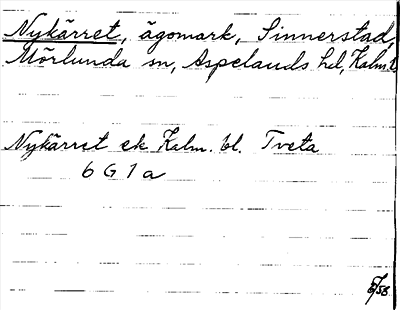 Nykärret, ägomark, Sinnerstad,
Mörlunda sn, Aspelands hd, Kalm. l.
Nykärret ek Kalm. bl. Tveta
6 G 1 a